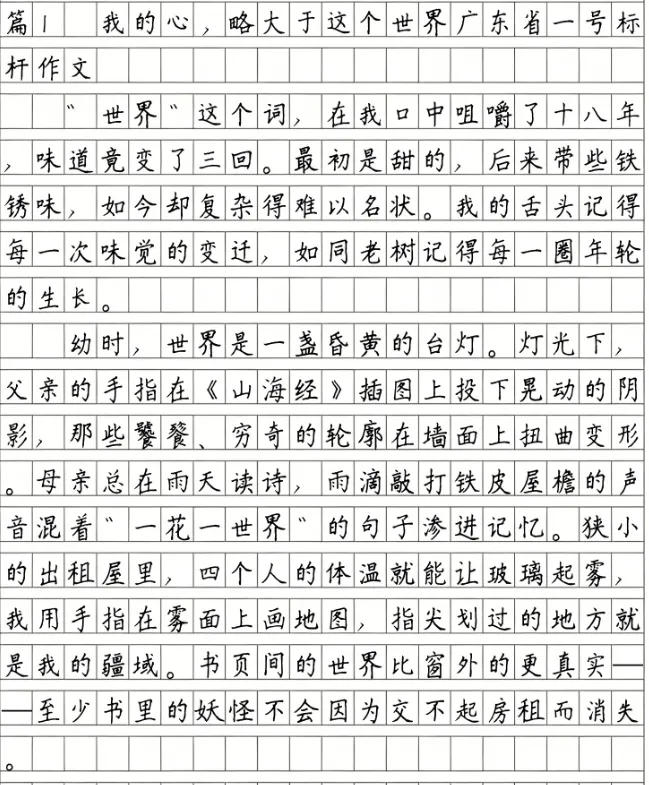 篇1 我的心，略大于这个世界广东省一号标
杆作文
“世界”这个词，在我口中咀嚼了十八年
，味道竟变了三回。最初是甜的，后来带些铁
锈味，如今却复杂得难以名状。我的舌头记得
每一次味觉的变迁，如同老树记得每一圈年轮
的生长。
幼时，世界是一盏昏黄的台灯。灯光下，
父亲的手指在《山海经》插图上投下晃动的阴
影，那些饕餮、穷奇的轮廓在墙面上扭曲变形
。母亲总在雨天读诗，雨滴敲打铁皮屋檐的声
音混着“一花一世界”的句子渗进记忆。狭小
的出租屋里，四个人的体温就能让玻璃起雾，
我用手指在雾面上画地图，指尖划过的地方就
是我的疆域。书页间的世界比窗外的更真实—
—至少书里的妖怪不会因为交不起房租而消失
。